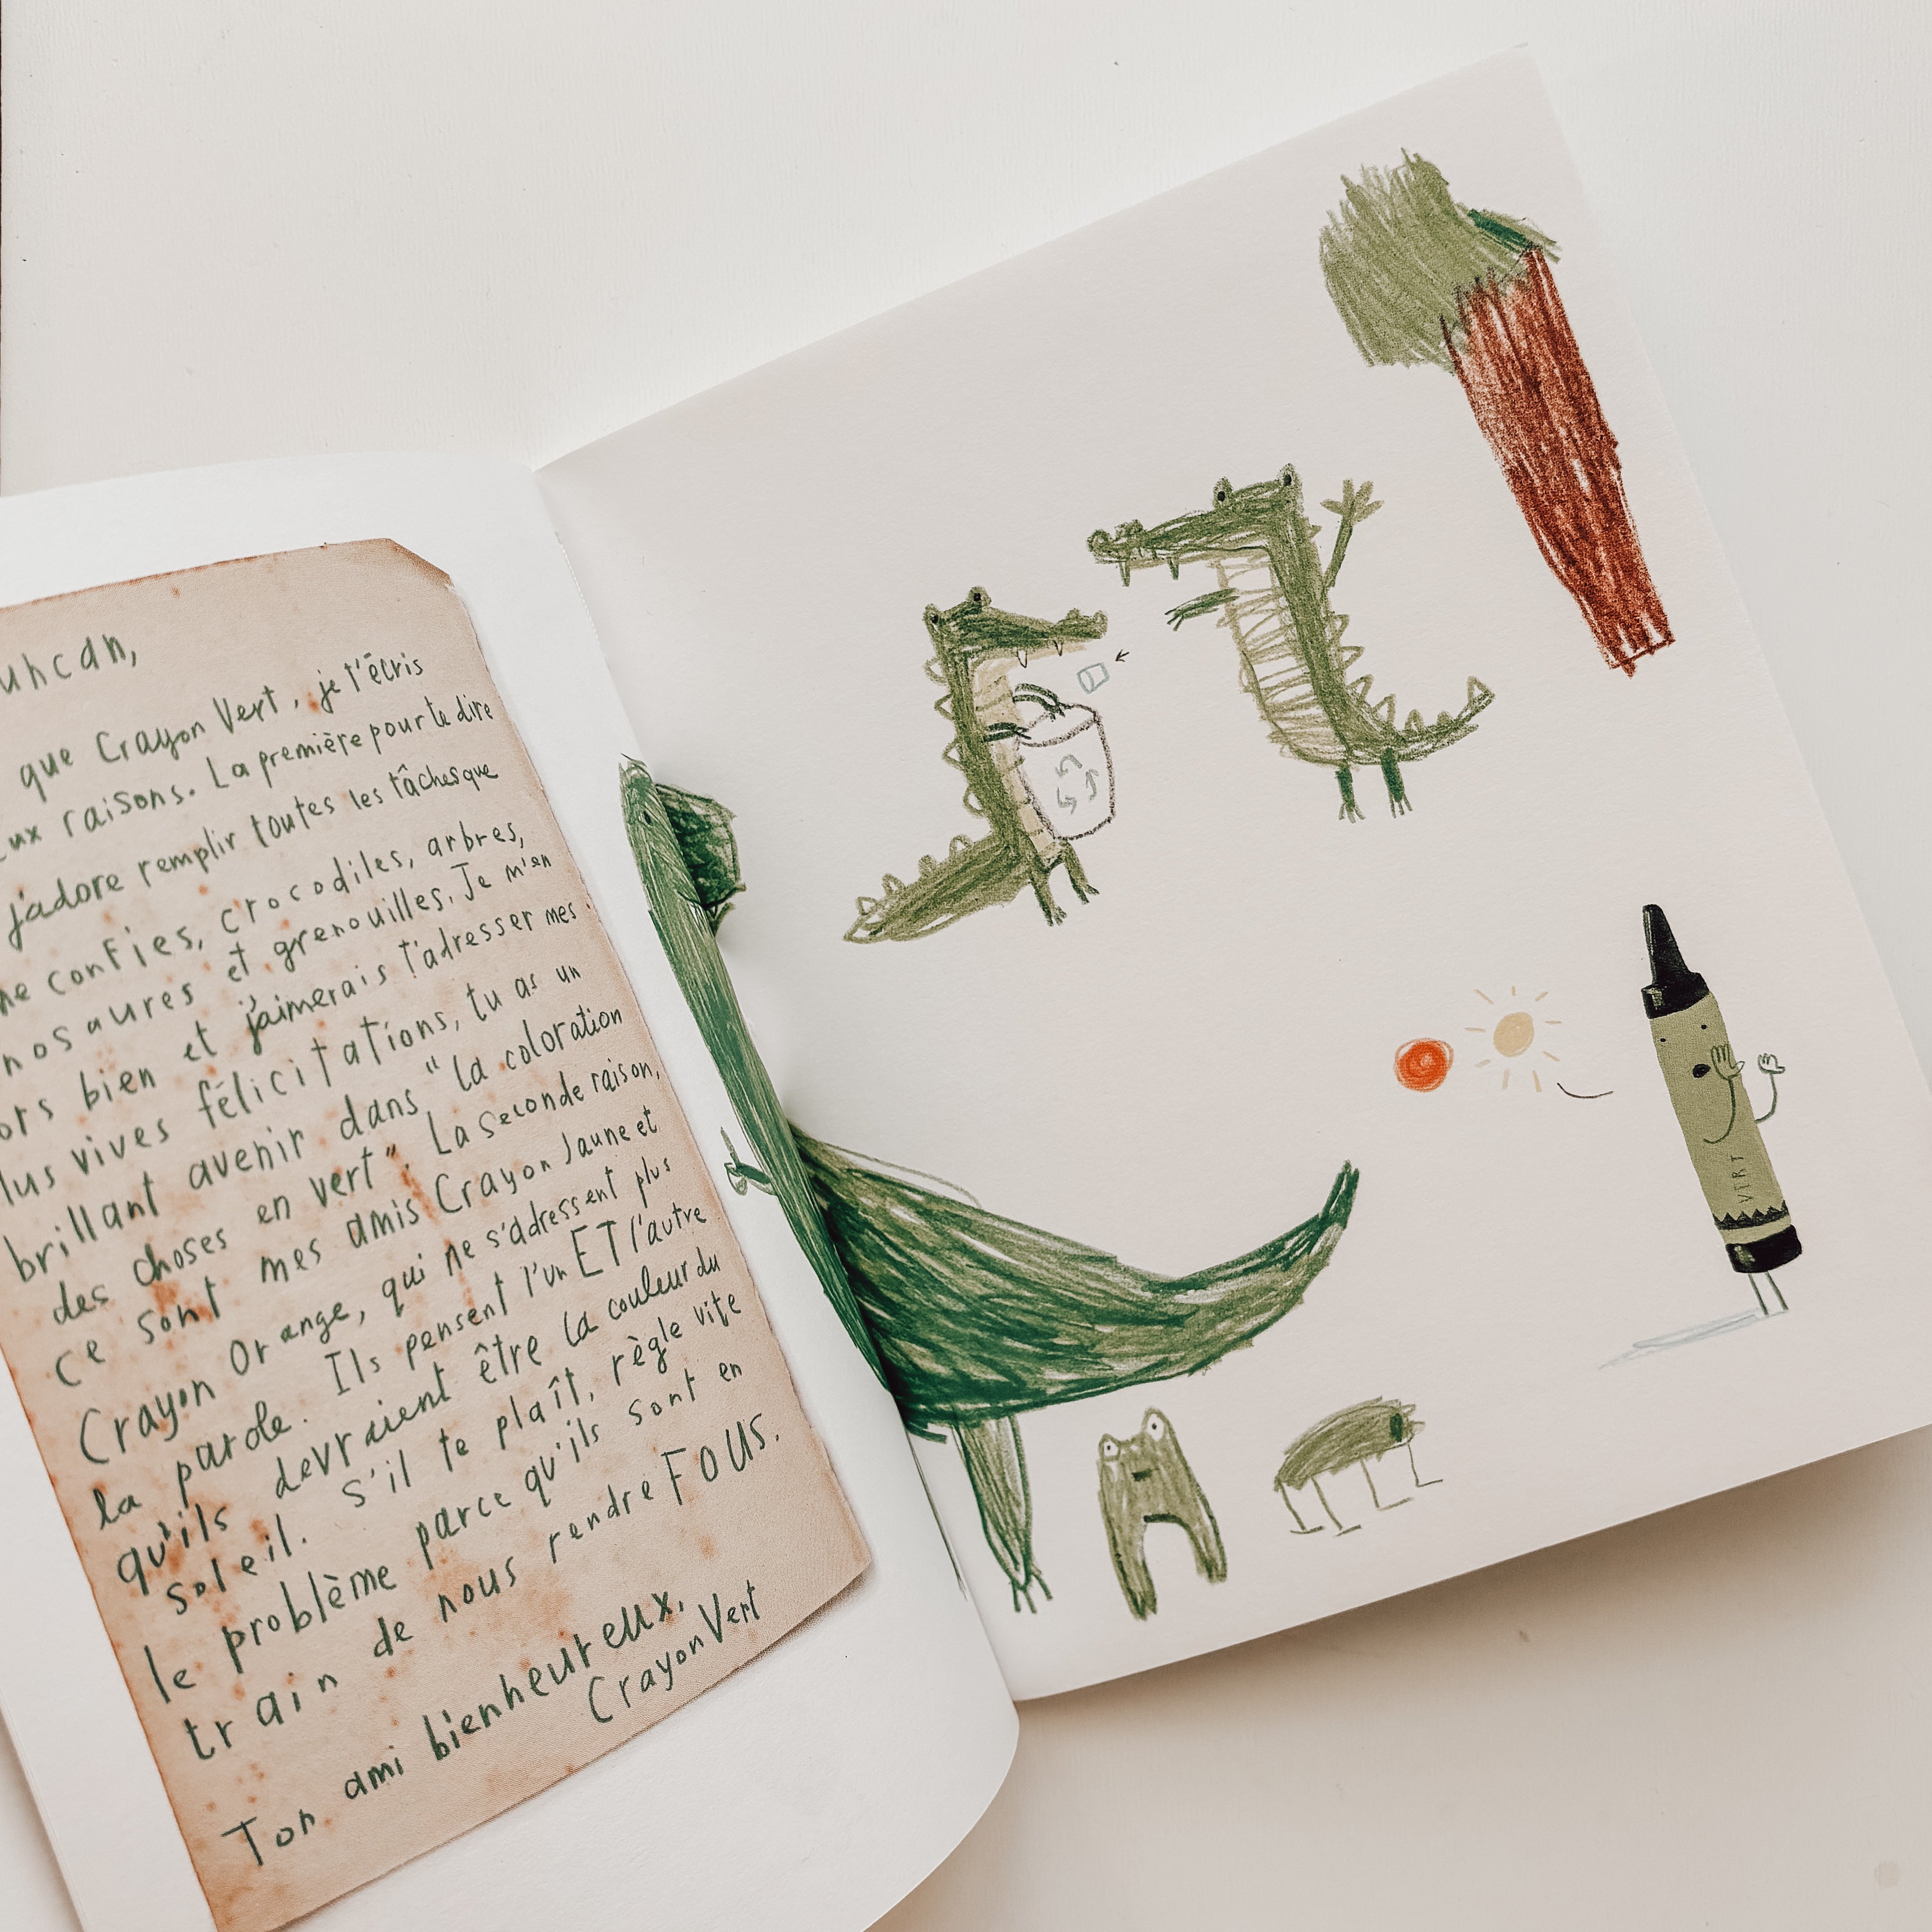 uncan,
que Crayon Vert, je t'écris
ux raisons. La première pour te dire
j'adore remplir toutes les tâches que
ne confies, crocodiles, arbres,
nosaures et grenouilles. Je m'en
ors bien et j'aimerais t'adresser mes
lus vives félicitations, tu as un
brillant avenir dans "la coloration
des choses en vert". La seconde raison,
ce sont mes amis Crayon Jaune et
Crayon Orange, qui ne s'adressent plus
la parole. Ils pensent l'un ET l'autre
qu'ils devraient être la couleur du
soleil. S'il te plaît, règle vite
le problème parce qu'ils sont en
train de nous rendre FOUS.
Ton ami bienheureux,
Crayon Vert
VERT